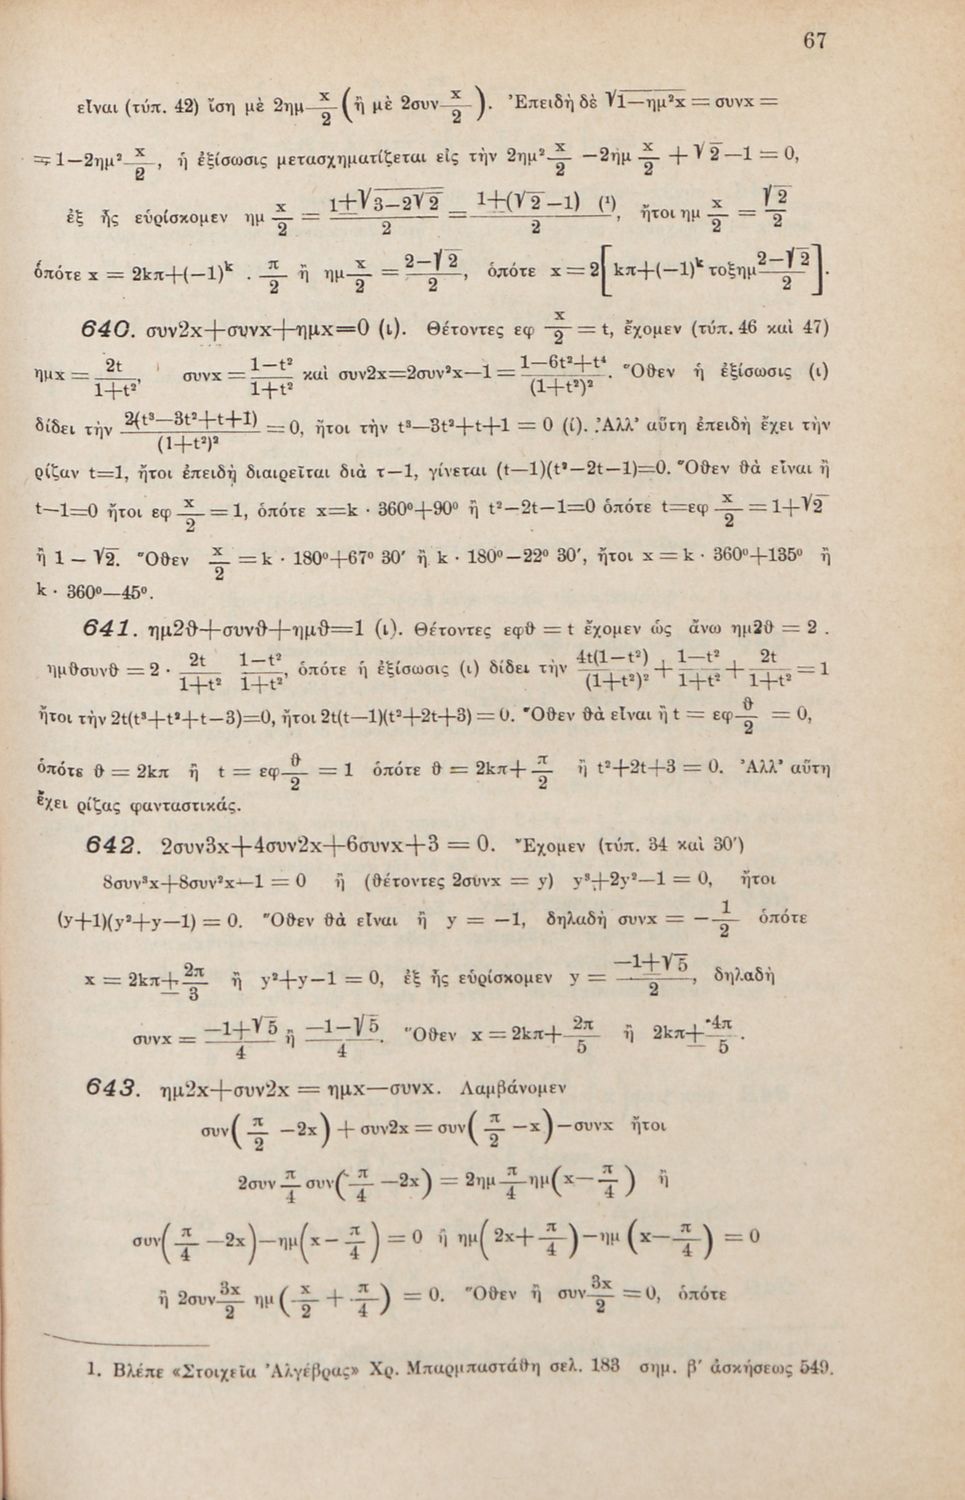 67
εἶναι (τύπ. 42) ἴση μὲ 2ημ x/2 (ἢ μὲ 2συν x/2). Ἐπειδὴ δὲ √1—ημ²x = συνx =
= 1—2ημ² x/2, ἡ ἐξίσωσις μετασχηματίζεται εἰς τὴν 2ημ² x/2 —2ημ x/2 + √2—1 = 0,
ἐξ ἧς εὑρίσκομεν ημ x/2 = (1±√3—2√2)/2 = (1±(√2—1))/2 (¹), ἤτοι ημ x/2 = √2/2
ὁπότε x = 2kπ+(—1)ᵏ · π/2 ἢ ημ x/2 = (2—√2)/2, ὁπότε x = 2[kπ+(—1)ᵏ τοξημ (2—√2)/2].
640. συν2x+συνx+ημx=0 (ι). Θέτοντες εφ x/2 = t, ἔχομεν (τύπ. 46 καὶ 47)
ημx = 2t/(1+t²), συνx = (1—t²)/(1+t²) καὶ συν2x=2συν²x—1 = (1—6t²+t⁴)/(1+t²)². Ὅθεν ἡ ἐξίσωσις (ι)
δίδει τὴν 2(t³—3t²+t+1)/(1+t²)² = 0, ἤτοι τὴν t³—3t²+t+1 = 0 (ί). Ἀλλ' αὕτη ἐπειδὴ ἔχει τὴν
ρίζαν t=1, ἤτοι ἐπειδὴ διαιρεῖται διὰ τ—1, γίνεται (t—1)(t²—2t—1)=0. Ὅθεν θὰ εἶναι ἢ
t—1=0 ἤτοι εφ x/2 = 1, ὁπότε x=k · 360⁰+90⁰ ἢ t²—2t—1=0 ὁπότε t=εφ x/2 = 1+√2
ἢ 1 — √2. Ὅθεν x/2 = k · 180⁰+67⁰ 30′ ἢ k · 180⁰—22⁰ 30′, ἤτοι x = k · 360⁰+135⁰ ἢ
k · 360⁰—45⁰.
641. ημ2θ+συνθ+ημθ=1 (ι). Θέτοντες εφθ = t ἔχομεν ὡς ἄνω ημ2θ = 2 .
ημθσυνθ = 2 · 2t/(1+t²) (1—t²)/(1+t²), ὁπότε ἡ ἐξίσωσις (ι) δίδει τὴν 4t(1—t²)/(1+t²)² + (1—t²)/(1+t²) + 2t/(1+t²) = 1
ἤτοι τὴν 2t(t³+t²+t—3)=0, ἤτοι 2t(t—1)(t²+2t+3) = 0. Ὅθεν θὰ εἶναι ἢ t = εφ θ/2 = 0,
ὁπότε θ = 2kπ ἢ t = εφ θ/2 = 1 ὁπότε θ = 2kπ+ π/2 ἢ t²+2t+3 = 0. Ἀλλ' αὕτη
ἔχει ρίζας φανταστικάς.
642. 2συν3x+4συν2x+6συνx+3 = 0. Ἔχομεν (τύπ. 34 καὶ 30′)
8συν³x+8συν²x—1 = 0 ἢ (θέτοντες 2συνx = y) y³+2y²—1 = 0, ἤτοι
(y+1)(y²+y—1) = 0. Ὅθεν θὰ εἶναι ἢ y = —1, δηλαδὴ συνx = — 1/2 ὁπότε
x = 2kπ± 2π/3 ἢ y²+y—1 = 0, ἐξ ἧς εὑρίσκομεν y = (—1±√5)/2, δηλαδὴ
συνx = (—1+√5)/4 ἢ (—1—√5)/4. Ὅθεν x = 2kπ+ 2π/5 ἢ 2kπ± 4π/5.
643. ημ2x+συν2x = ημx—συνx. Λαμβάνομεν
συν(π/2 —2x) + συν2x = συν(π/2 —x)—συνx ἤτοι
2συν π/4 συν(π/4 —2x) = 2ημ π/4 ημ(x— π/4) ἢ
συν(π/4 —2x)—ημ(x— π/4) = 0 ἢ ημ(2x+ π/4)—ημ (x— π/4) = 0
ἢ 2συν 3x/2 ημ (x/2 + π/4) = 0. Ὅθεν ἢ συν 3x/2 = 0, ὁπότε
1. Βλέπε «Στοιχεῖα Ἀλγέβρας» Χρ. Μπαρμπαστάθη σελ. 183 σημ. β′ ἀσκήσεως 549.